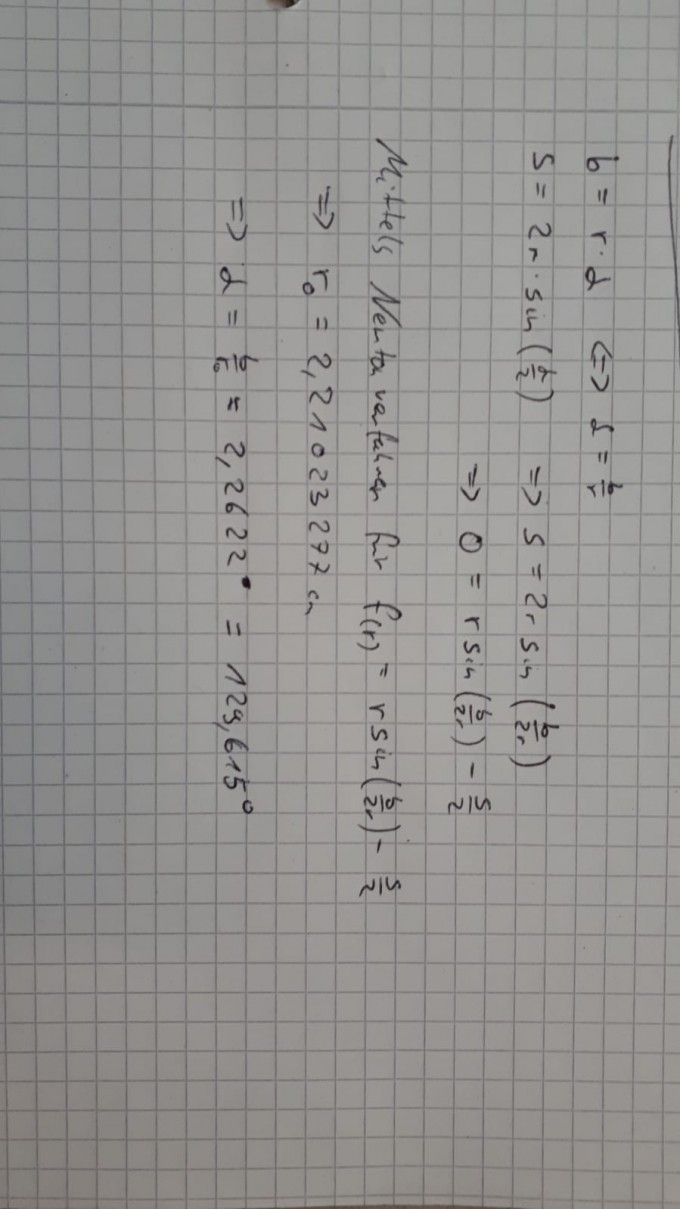 b = r · α <=> α = b/r
s = 2r · sin(α/2) => s = 2r sin(b/2r)
=> 0 = r sin(b/2r) - s/2
Mittels Newtonverfahren für f(r) = r sin(b/2r) - s/2
=> r₀ = 2,21023277 cm
=> α = b/r₀ = 2,2622 = 129,615°